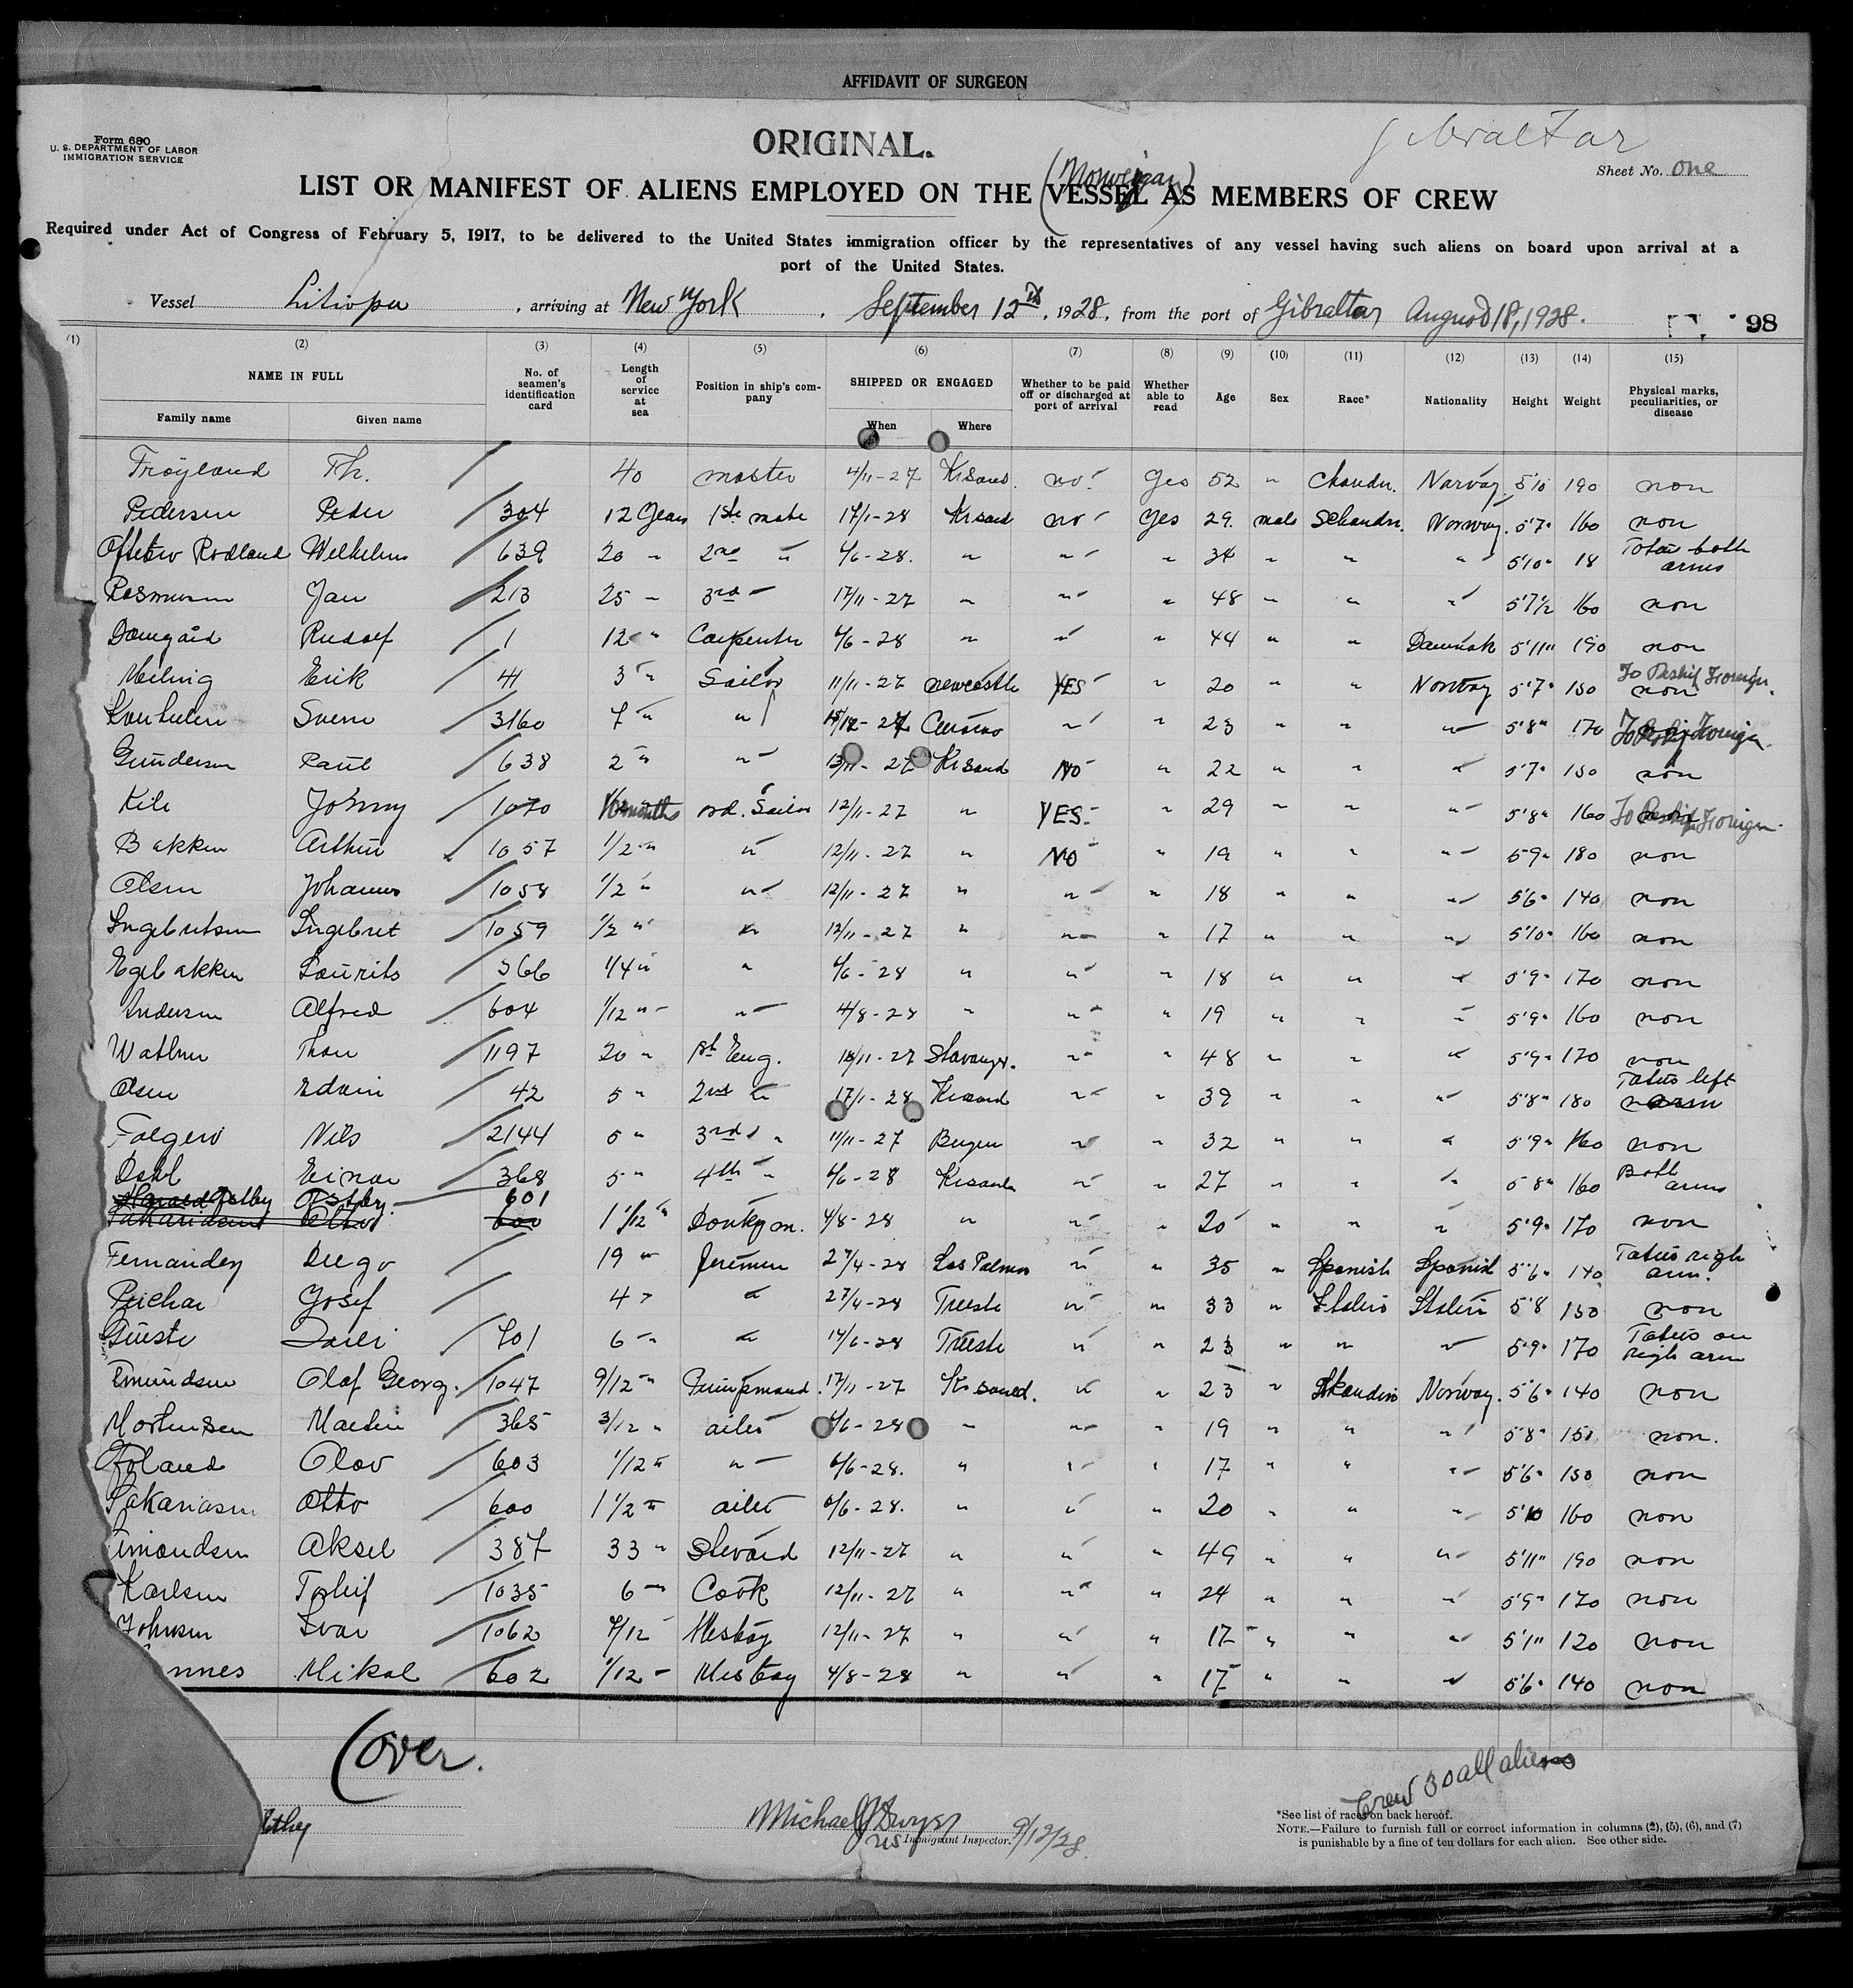 AFFIDAVIT OF SURGEON
Form 680
U. S. DEPARTMENT OF LABOR
IMMIGRATION SERVICE
ORIGINAL.
Gibraltar
Sheet No. one
(Norweigan)
LIST OR MANIFEST OF ALIENS EMPLOYED ON THE VESSEL AS MEMBERS OF CREW
Required under Act of Congress of February 5, 1917, to be delivered to the United States immigration officer by the representatives of any vessel having such aliens on board upon arrival at a
port of the United States.
Vessel Litiopa, arriving at New York, September 12th, 1928, from the port of Gibraltar August 18, 1928.
98
(1) (2) (3) (4) (5) (6) (7) (8) (9) (10) (11) (12) (13) (14) (15)
NAME IN FULL
Family name Given name
No. of seamen's identification card
Length of service at sea
Position in ship's company
SHIPPED OR ENGAGED
When Where
Whether to be paid off or discharged at port of arrival
Whether able to read
Age
Sex
Race*
Nationality
Height
Weight
Physical marks, peculiarities, or disease
Fröyland Th. 40 master 4/11-27 Krsand. no yes 52 " Norway 5'10 190 non
Pedersen Peder 304 12 Years 1ste mate 17/1-28 Krsand no yes 29. male Schandn. Norway. 5'7" 160 non
Rodland Wilhelm 639 20 " 2nd " 4/6-28. " " " 34 " " " 5'10" 18 Tatu both arms
Rasmusen Jan 213 25 " 3rd " 17/11-27 " " " 48 " " " 5'7½ 160 non
Damgård Rudolf 1 12 " Carpenter 4/6-28 " " " 44 " " Danmark 5'11" 190 non
Meling Erik 41 3 " Sailor 11/11-27 Newcastle YES " 20 " " Norway 5'7" 150 non To Reship Foreign.
Svenn 3160 7 " " " " 23 " " " 5'8" 170 To Reship Foreign.
Gundersen Paul 638 2 " " 13/11-27 Krsand NO " 22 " " " 5'7" 150 non
Kile Johnny 1070 ord. Sailor 12/11-27 " YES " 29 " " " 5'8" 160 To Reship Foreign.
Bakken Arthur 1057 1/2 " " 12/11-27 " NO " 19 " " " 5'9" 180 non
Olsen Johannes 1058 1/2 " " 12/11-27 " " " 18 " " " 5'6" 140 non
Ingebretsen Ingebret 1059 1/2 " " 12/11-27 " " " 17 " " " 5'10" 160 non
Egebakken Laurits 366 1/4 " " 4/6-28 " " " 18 " " " 5'9" 170 non
Andersen Alfred 604 1/12 " " 4/8-28 " " " 19 " " " 5'9" 160 non
Thon 1197 20 " 1st Eng. 18/11-27 Stavanger. " " 48 " " " 5'9" 170 non
Olsen Edvin 42 5 " 2nd " 17/1-28 Krsand " " 39 " " " 5'8" 180 Tatus left arm
Nils 2144 5 " 3rd " 11/11-27 Bergen " " 32 " " " 5'9" 160 non
Dahl Einar 368 5 " 4th " 4/6-28 Krsand " " 27 " " " 5'8" 160 Both arms
Harald Ostby Ostby. 601
Otto 600 1 1/12 " Donkym. 4/8-28 " " " 20 " " " 5'9" 170 non
Fernandez Diego 19 " 27/4-28 Las Palmas " " 35 " Spanish Spanish 5'6" 140 Tatus righ arm.
Josef 4 " " 27/4-28 Trieste " " 33 " 5'8 150 non
701 6 " " 14/6-28 Trieste " " 23 " " " 5'9" 170 Tatus on righ arm
Emundsen Olaf Georg. 1047 9/12 " Pumpmand. 17/11-27 Krsand. " " 23 " Skandin Norway. 5'6" 140 non
Mortensen 365 3/12 " oiler 4/6-28 " " " 19 " " " 5'8" 150 non.
Olav 603 1/12 " " 4/6-28. " " " 17 " " " 5'6" 150 non
Sakariasen Otto 600 1 1/2 " oiler 4/6-28. " " " 20 " " " 5'10 160 non
Aksel 387 33 " Stevard 12/11-27 " " " 49 " " " 5'11" 190 non
Karlsen 1035 6 " Cook 12/11-27 " " " 24 " " " 5'9" 170 non
Johnsen Ivar 1062 Mesboy 12/11-27 " " " 17 " " " 5'1" 120 non
nnes Mikal 602 1/12 " Mesboy 4/8-28 " " " 17 " " " 5'6" 140 non
(over.
Crew 30 all aliens
Michael J Dwyer
US Immigrant Inspector. 9/12/28.
*See list of races on back hereof.
NOTE.—Failure to furnish full or correct information in columns (2), (5), (6), and (7)
is punishable by a fine of ten dollars for each alien. See other side.